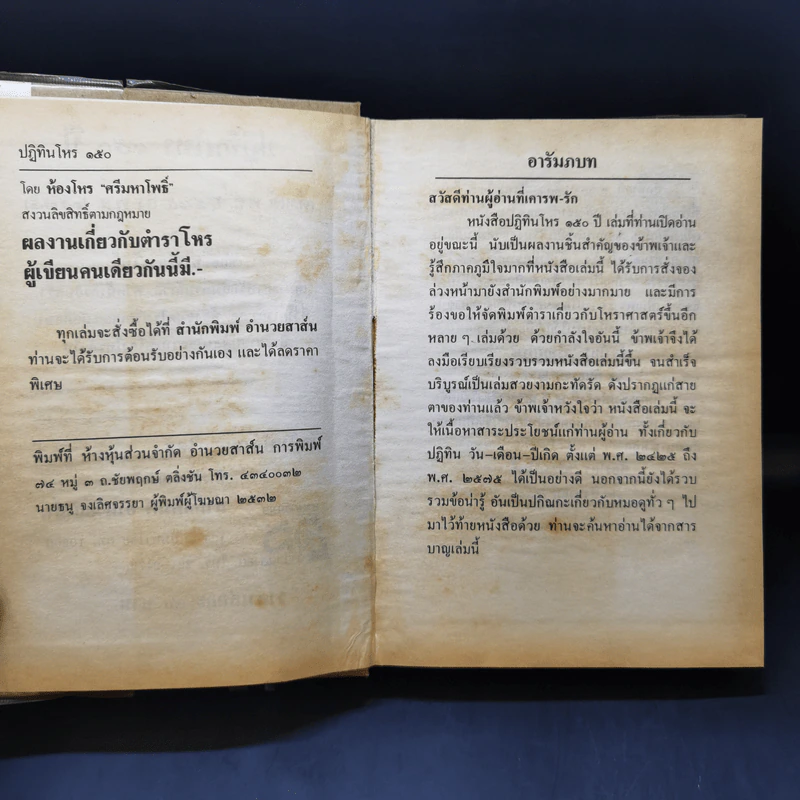 ปฏิทินโหร ๑๕๐
โดย ห้องโหร "ศรีมหาโพธิ์"
สงวนลิขสิทธิ์ตามกฎหมาย
ผลงานเกี่ยวกับตำราโหร
ผู้เขียนคนเดียวกันนี้มี.-
ทุกเล่มจะสั่งซื้อได้ที่ สำนักพิมพ์ อำนวยสาส์น
ท่านจะได้รับการต้อนรับอย่างกันเอง และได้ลดราคา
พิเศษ
พิมพ์ที่ ห้างหุ้นส่วนจำกัด อำนวยสาส์น การพิมพ์
๗๔ หมู่ ๓ ถ.ชัยพฤกษ์ ตลิ่งชัน โทร. ๔๓๔๐๐๓๒
นายธนู จงเลิศจรรยา ผู้พิมพ์ผู้โฆษณา ๒๕๓๒
อารัมภบท
สวัสดีท่านผู้อ่านที่เคารพ-รัก
หนังสือปฏิทินโหร ๑๕๐ ปี เล่มที่ท่านเปิดอ่าน
อยู่ขณะนี้ นับเป็นผลงานชิ้นสำคัญของข้าพเจ้าและ
รู้สึกภาคภูมิใจมากที่หนังสือเล่มนี้ ได้รับการสั่งจอง
ล่วงหน้ามายังสำนักพิมพ์อย่างมากมาย และมีการ
ร้องขอให้จัดพิมพ์ตำราเกี่ยวกับโหราศาสตร์ขึ้นอีก
หลาย ๆ เล่มด้วย ด้วยกำลังใจอันนี้ ข้าพเจ้าจึงได้
ลงมือเรียบเรียงรวบรวมหนังสือเล่มนี้ขึ้น จนสำเร็จ
บริบูรณ์เป็นเล่มสวยงามกะทัดรัด ดังปรากฏแก่สาย
ตาของท่านแล้ว ข้าพเจ้าหวังใจว่า หนังสือเล่มนี้ จะ
ให้เนื้อหาสาระประโยชน์แก่ท่านผู้อ่าน ทั้งเกี่ยวกับ
ปฏิทิน วัน–เดือน–ปีเกิด ตั้งแต่ พ.ศ. ๒๔๒๕ ถึง
พ.ศ. ๒๕๗๕ ได้เป็นอย่างดี นอกจากนี้ยังได้รวบ
รวมข้อน่ารู้ อันเป็นปกิณกะเกี่ยวกับหมอดูทั่ว ๆ ไป
มาไว้ท้ายหนังสือด้วย ท่านจะค้นหาอ่านได้จากสาร
บาญเล่มนี้